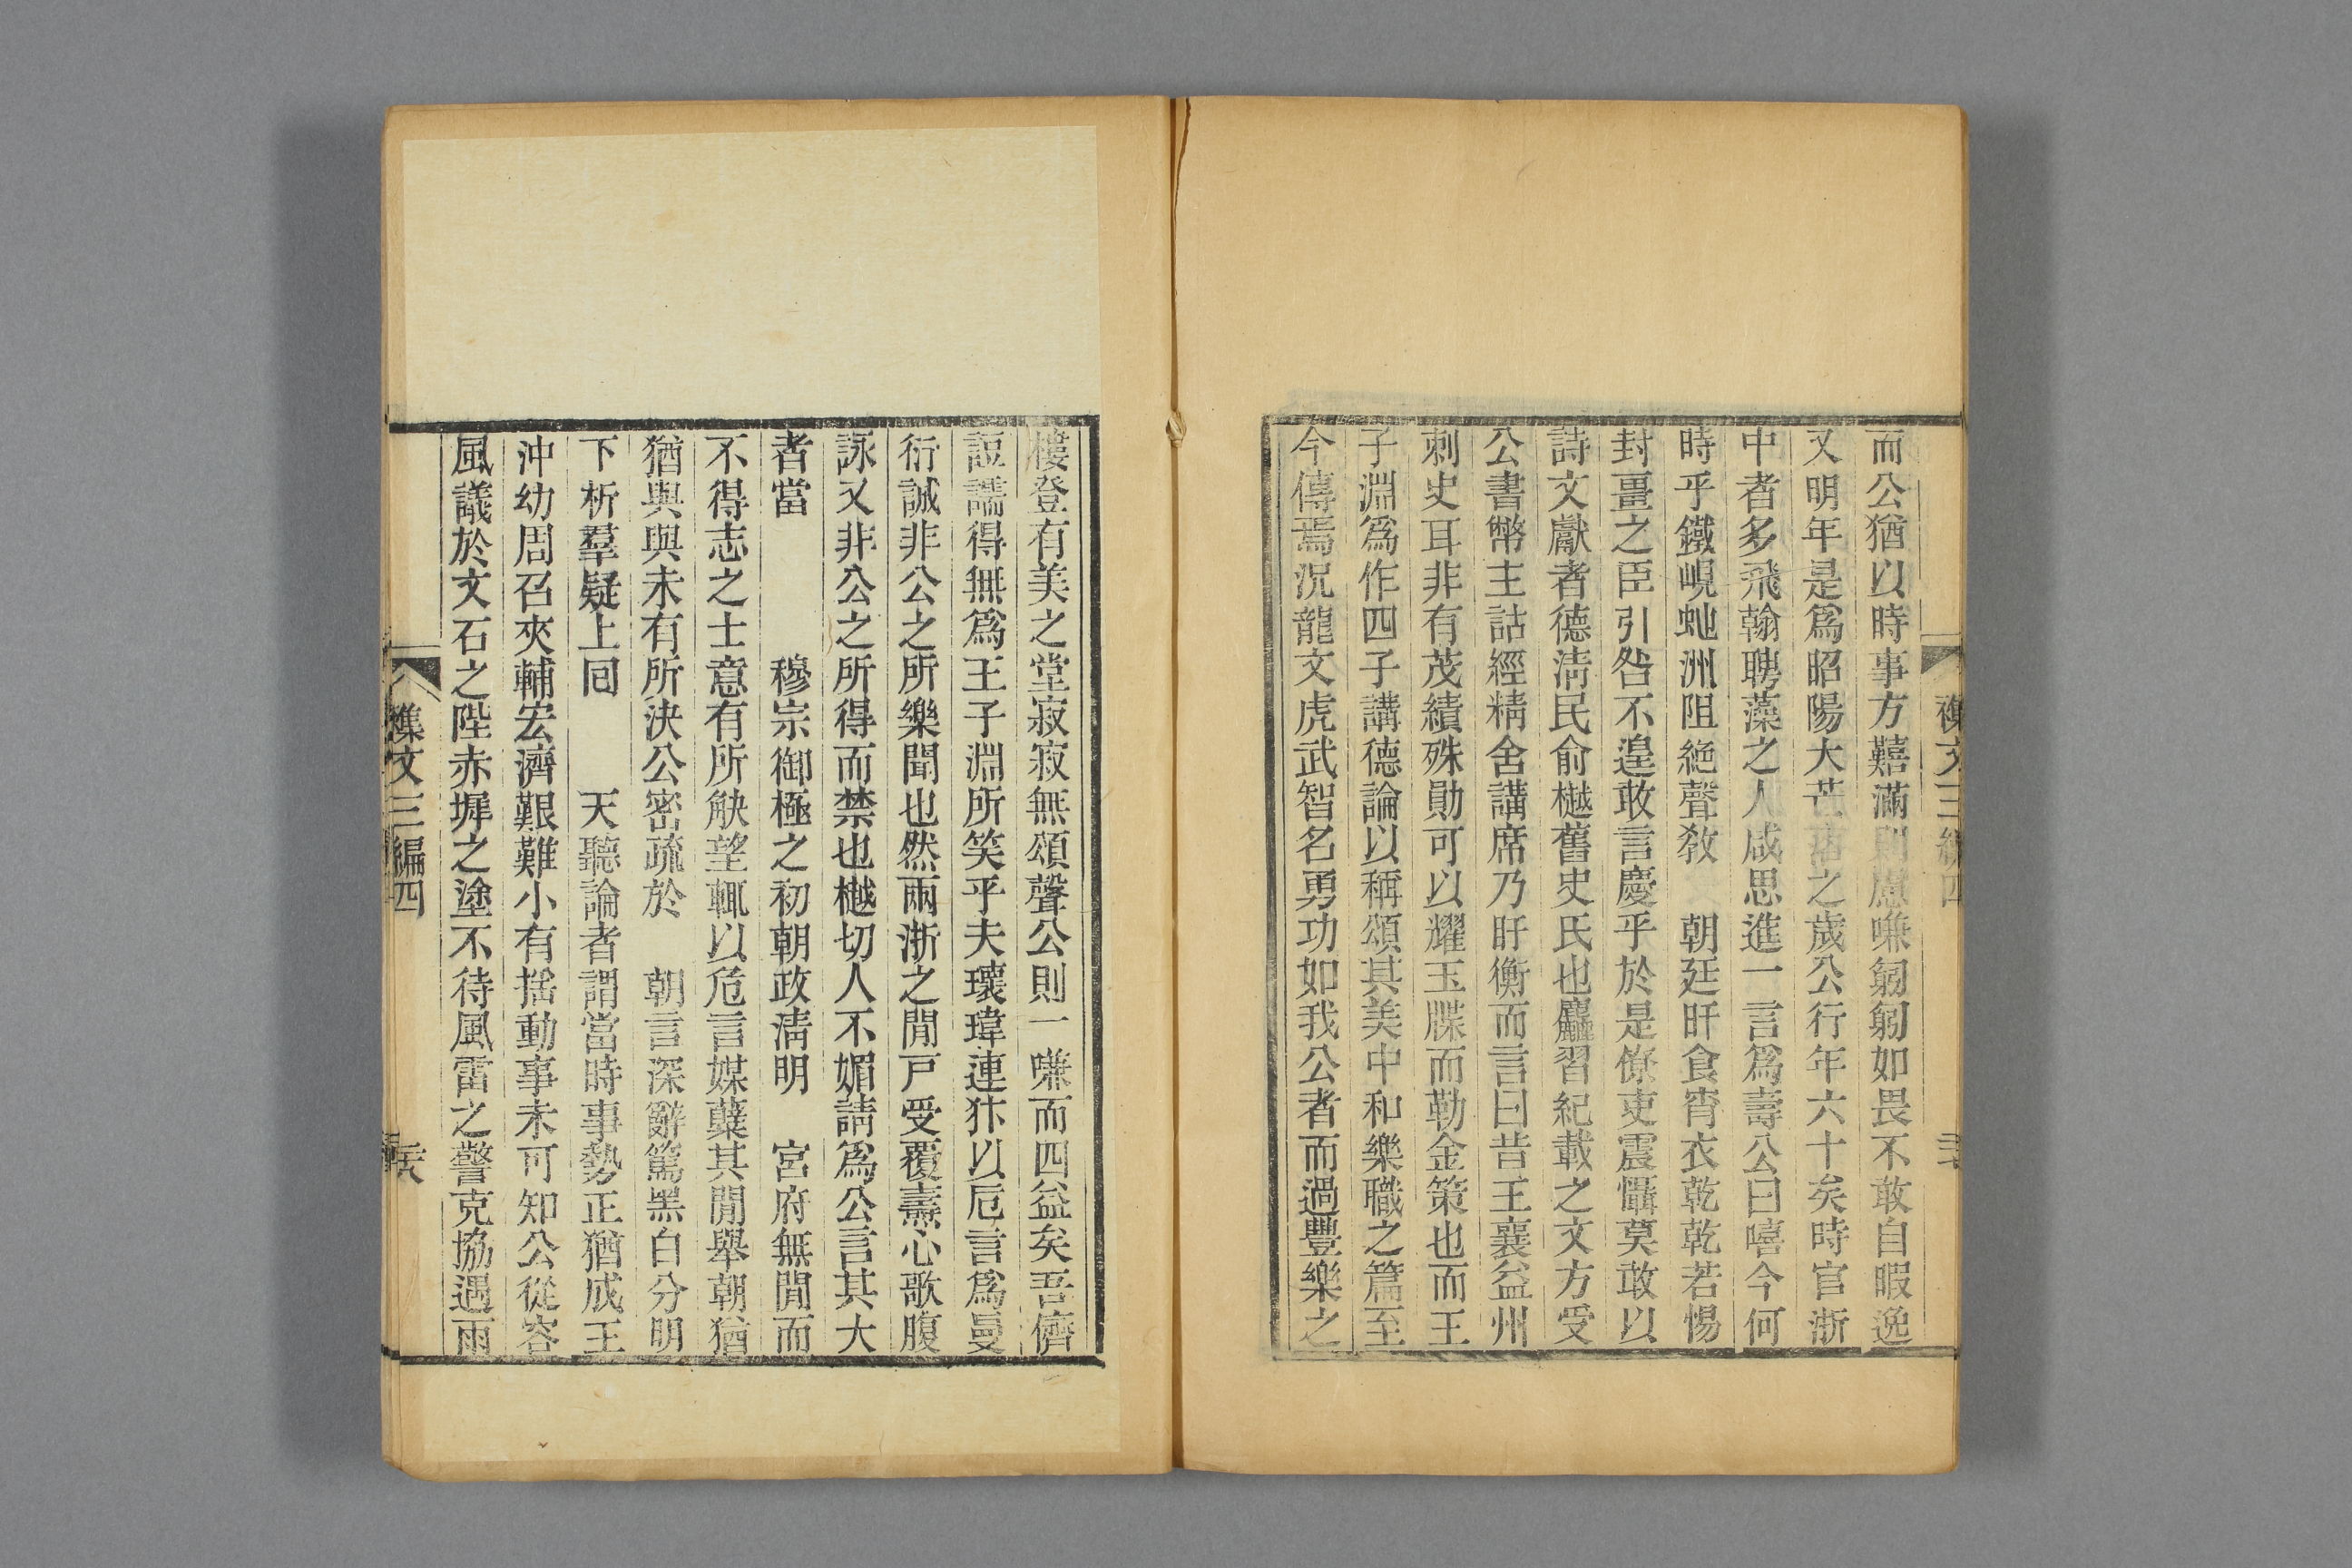 而公猶以時事方囏滿則慮嗛匑匑如畏不敢自暇逸
又明年是爲昭陽大芒落之歲公行年六十矣時官浙
中者多飛翰聘藻之人咸思進一言爲壽公曰嘻今何
時乎鐵峴虵洲阻絶聲敎　朝廷旰食宵衣乾乾若惕
封畺之臣引咎不遑敢言慶乎於是僚吏震懾莫敢以
詩文獻者德淸民俞樾舊史氏也麤習紀載之文方受
公書幣主詁經精舍講席乃盱衡而言曰昔王襄益州
刺史耳非有茂績殊勛可以耀玉牒而勒金策也而王
子淵爲作四子講德論以稱頌其美中和樂職之篇至
今傳焉況龍文虎武智名勇功如我公者而過豐樂之
樓登有美之堂寂寂無頌聲公則一嗛而四益矣吾儕
詎譳得無爲王子淵所笑乎夫瓌瑋連犿以卮言爲曼
衍誠非公之所樂聞也然兩浙之閒戸受覆燾心歌腹
詠又非公之所得而禁也樾切人不媚請爲公言其大
者當　　　穆宗御極之初朝政淸明　宮府無閒而
不得志之士意有所觖望輒以危言媒糵其閒舉朝猶
猶與與未有所決公密疏於　朝言深辭篤黑白分明
下析羣疑上囘　　天聽論者謂當時事勢正猶成王
沖幼周召夾輔宏濟艱難小有搖動事未可知公從容
風議於文石之陛赤墀之塗不待風雷之警克協遇雨
襍文三編四
二十六